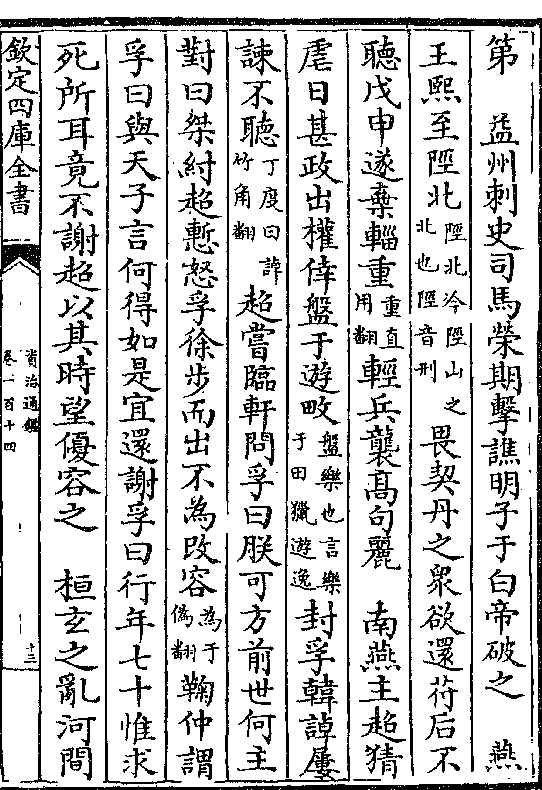 第　益州刺史司馬榮期擊譙明子于白帝破之　燕
王熙至陘北陘北冷陘山之北也陘音刑畏契丹之衆欲還苻后不
聽戊申遂棄輜重重直用翻輕兵襲高句麗　南燕主超猜
虐日甚政出權倖盤于遊畋盤樂也言樂于田獵遊逸封孚韓䛬屢
諫不聽丁度曰䛬竹角翻超嘗臨軒問孚曰朕可方前世何主
對曰桀紂超慙怒孚徐步而出不為改容為于偽翻鞠仲謂
孚曰與天子言何得如是宜還謝孚曰行年七十惟求
死所耳竟不謝超以其時望優容之　桓玄之亂河間
欽定四庫全書
資治通鑑
卷一百十四
十三